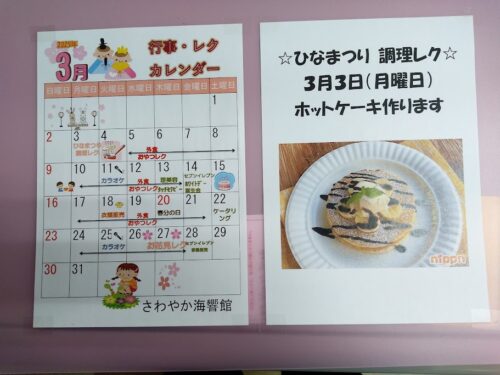 2025年
3月
行事・レク
カレンダー
日曜日 月曜日 火曜日 水曜日 木曜日 金曜日 土曜日
1
2 3 4 5 6 7 8
ひなまつり
調理レク
外食
おやつレク
9 10 11 12 13 14 15
カラオケ
外食
おやつレク
セブンイレブン
ホワイトデー
誕生会
16 17 18 19 20 21 22
衣類販売
外食
おやつレク
春分の日
ケータリング
23 24 25 26 27 28 29
カラオケ
お花見レク
セブンイレブン
30 31
さわやか海響館
☆ひなまつり 調理レク☆
3月3日(月曜日)
ホットケーキ作ります
nippn